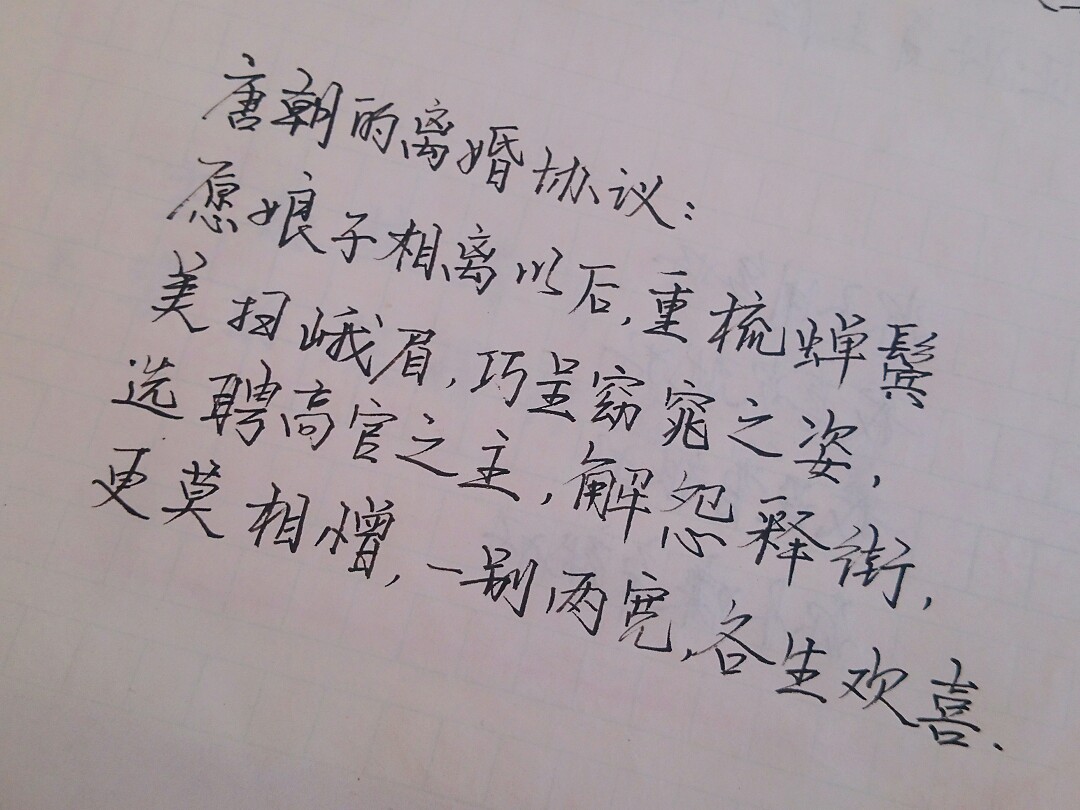 唐朝的离婚协议：
愿娘子相离以后,重梳蝉鬓
美扫峨眉,巧呈窈窕之姿,
选聘高官之主,解怨释街,
更莫相憎,一别两宽,各生欢喜.